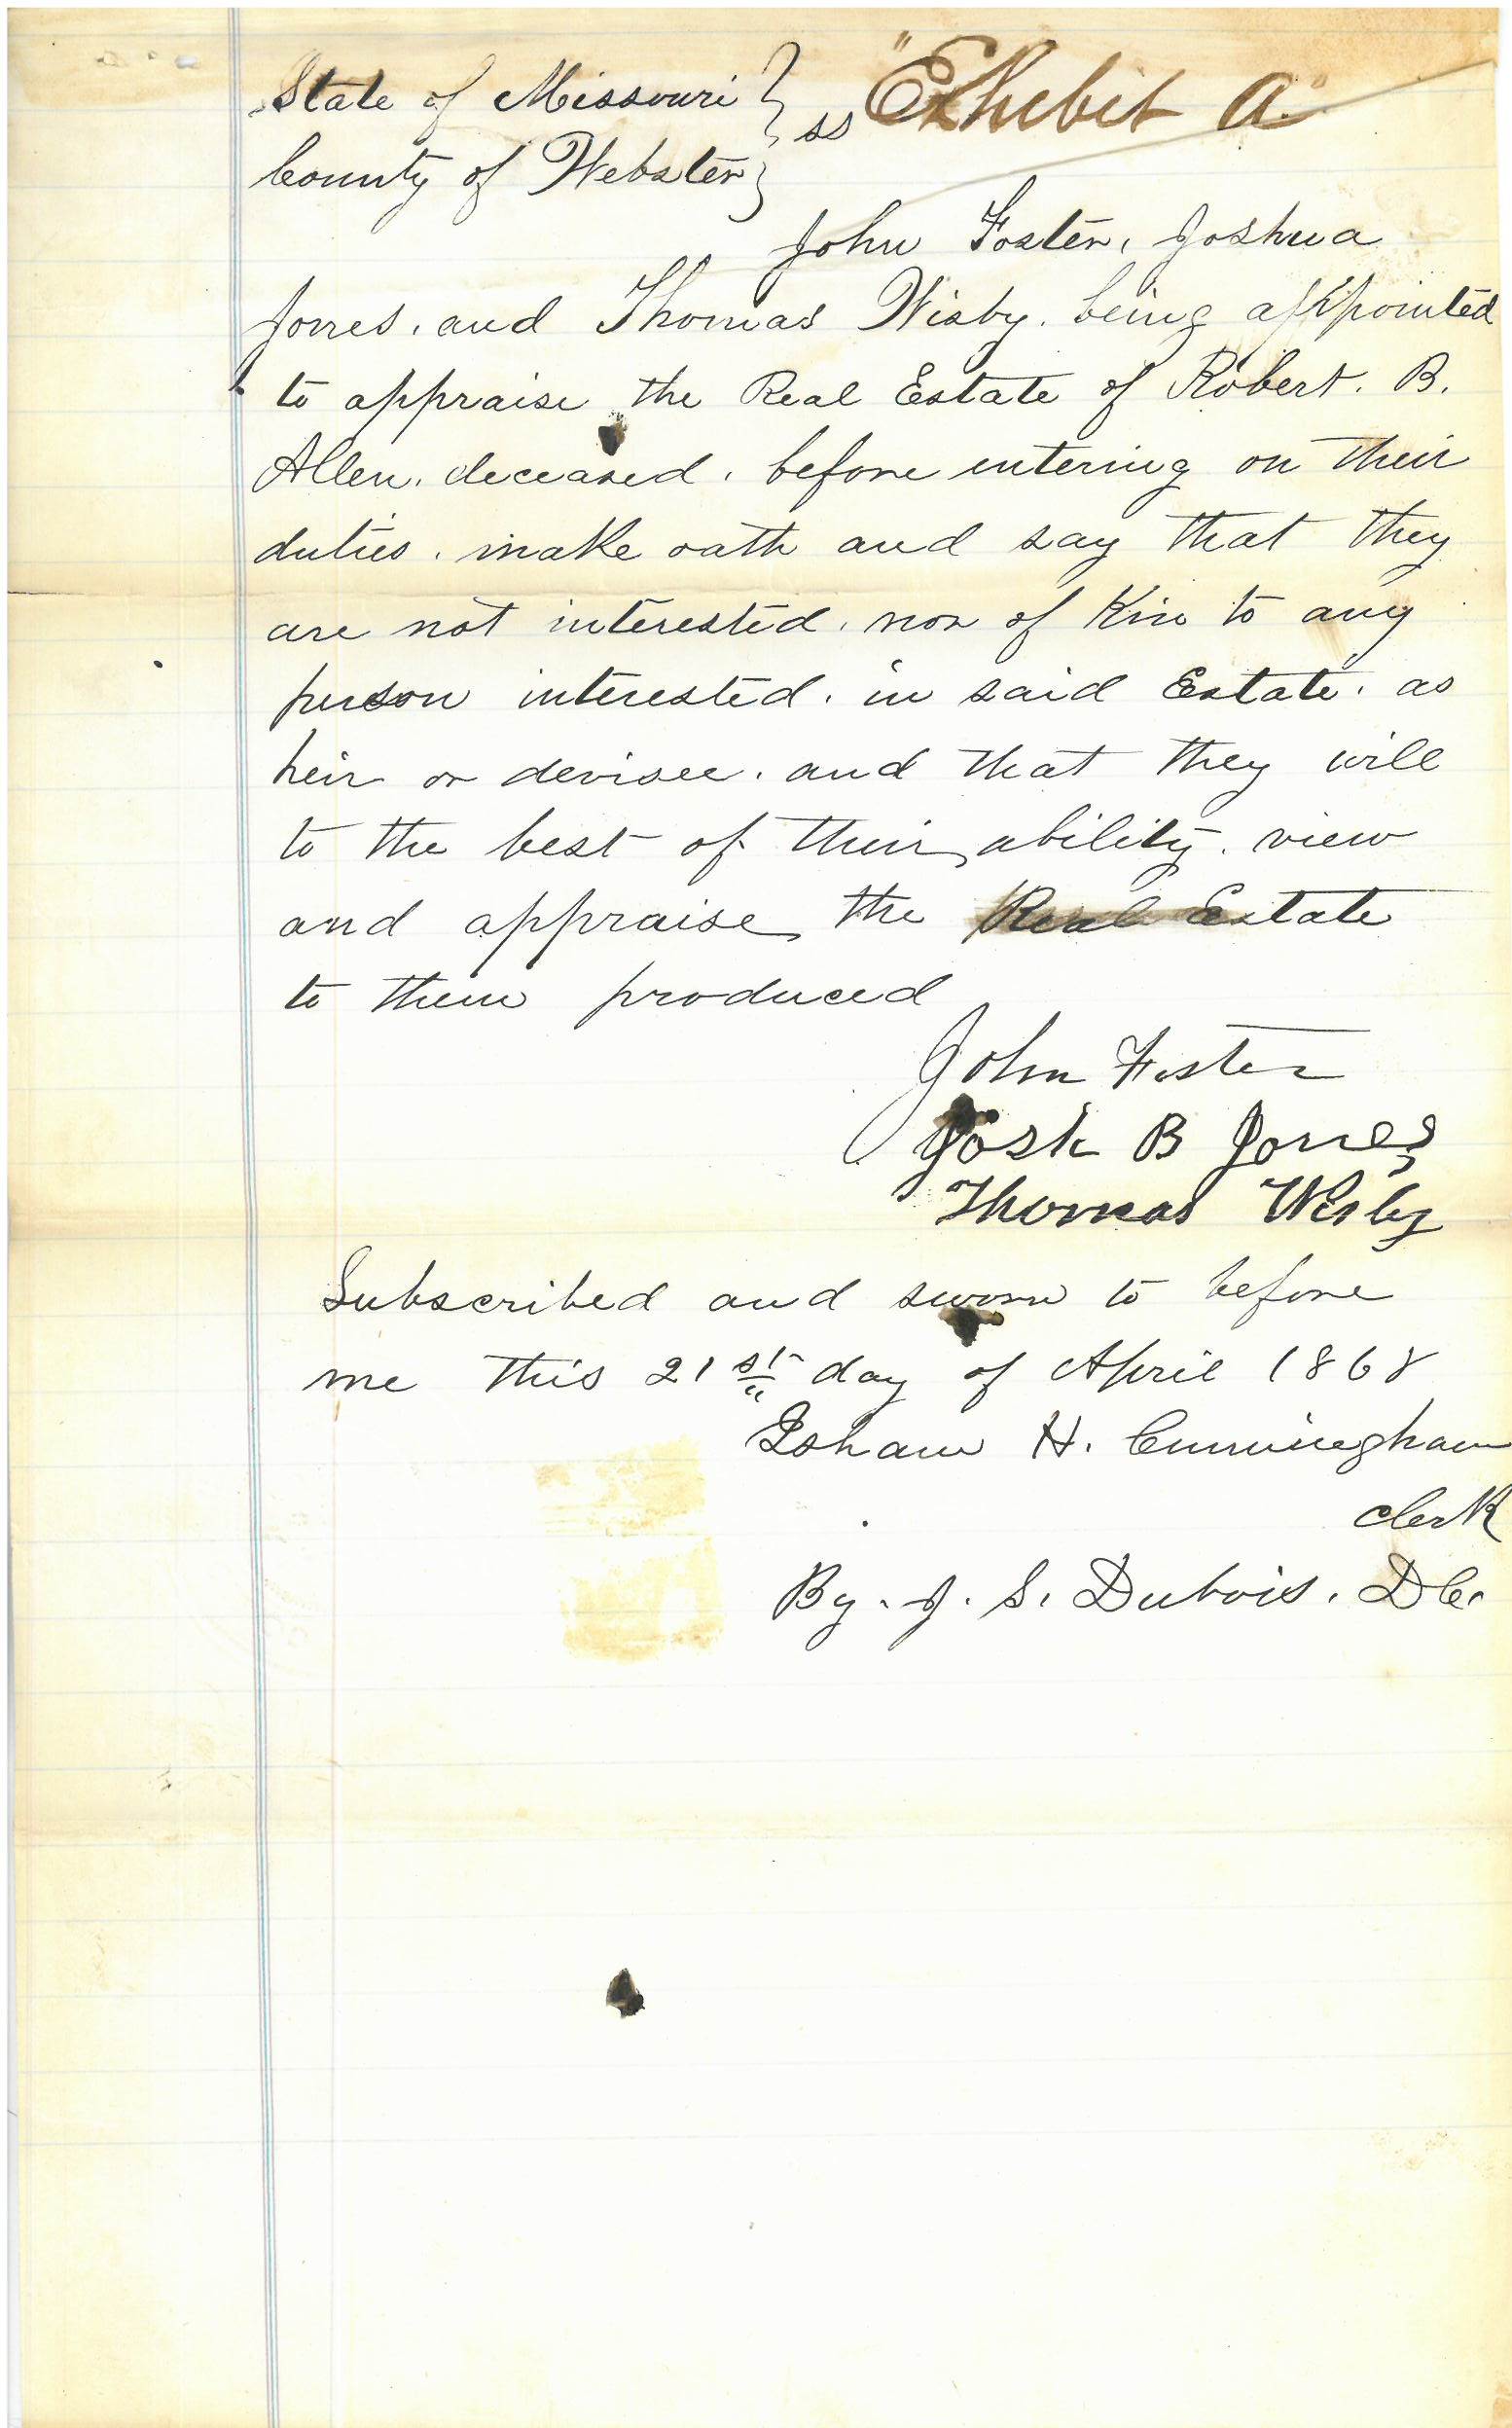 State of Missouri } ss "Exhibit A"
County of Webster }
John Foster, Joshua
Jones, and Thomas Wisby, being appointed
to appraise the Real Estate of Robert. B.
Allen, deceased, before entering on their
duties, make oath and say that they
are not interested, nor of Kin to any
person interested, in said Estate, as
heir or devisee, and that they will
to the best of their ability, view
and appraise the Real Estate
to them produced
John Foster
Josh B Jones
Thomas Wisby
Subscribed and sworn to before
me this 21st day of April 1868
Isham H. Cunningham
Clerk
By. J. S. Dubois. D C.